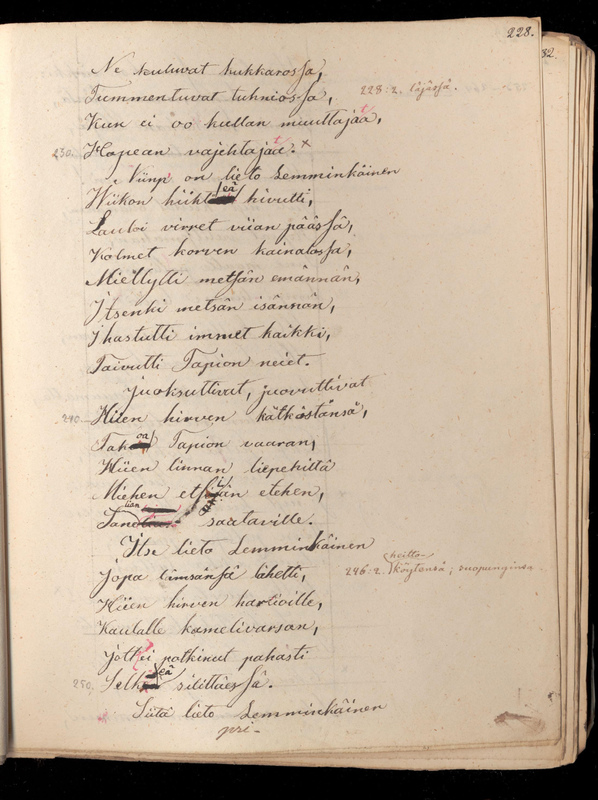 228.
32.
Ne kuluvat kukkarossa,
Tummentuvat tuhniossa, 228:2. läjässä.
Kun ei oo kullan muuttajaa, t
230. Hopean vajehtajaa. t x
Niinp' on lieto Lemminkäinen
Wiikon hiiht eä hivutti,
Lauloi virret viian päässä,
Kolmet korven kainalossa,
Miellytti metsän emännän,
Itsenki metsän isännän,
Ihastutti immet kaikki,
Taivutti Tapion neiet.
Juoksuttivat, juovuttivat
240. Hiien hirven kätköstänsä,
Tak oa Tapion vaaran,
Hiien linnan liepehiltä
Miehen etsijän etehen,
lian saataville.
Itse lieto Lemminkäinen
Jopa limsänsä lähetti, 246:2. heitto köytensä; suopunginsa.
Hiien hirven hartioille,
Kaulalle kamelivarsan,
Jott'ei potkinut pahasti
250. Selk eä silittäessä.
Siitä lieto Lemminkäinen
pri-